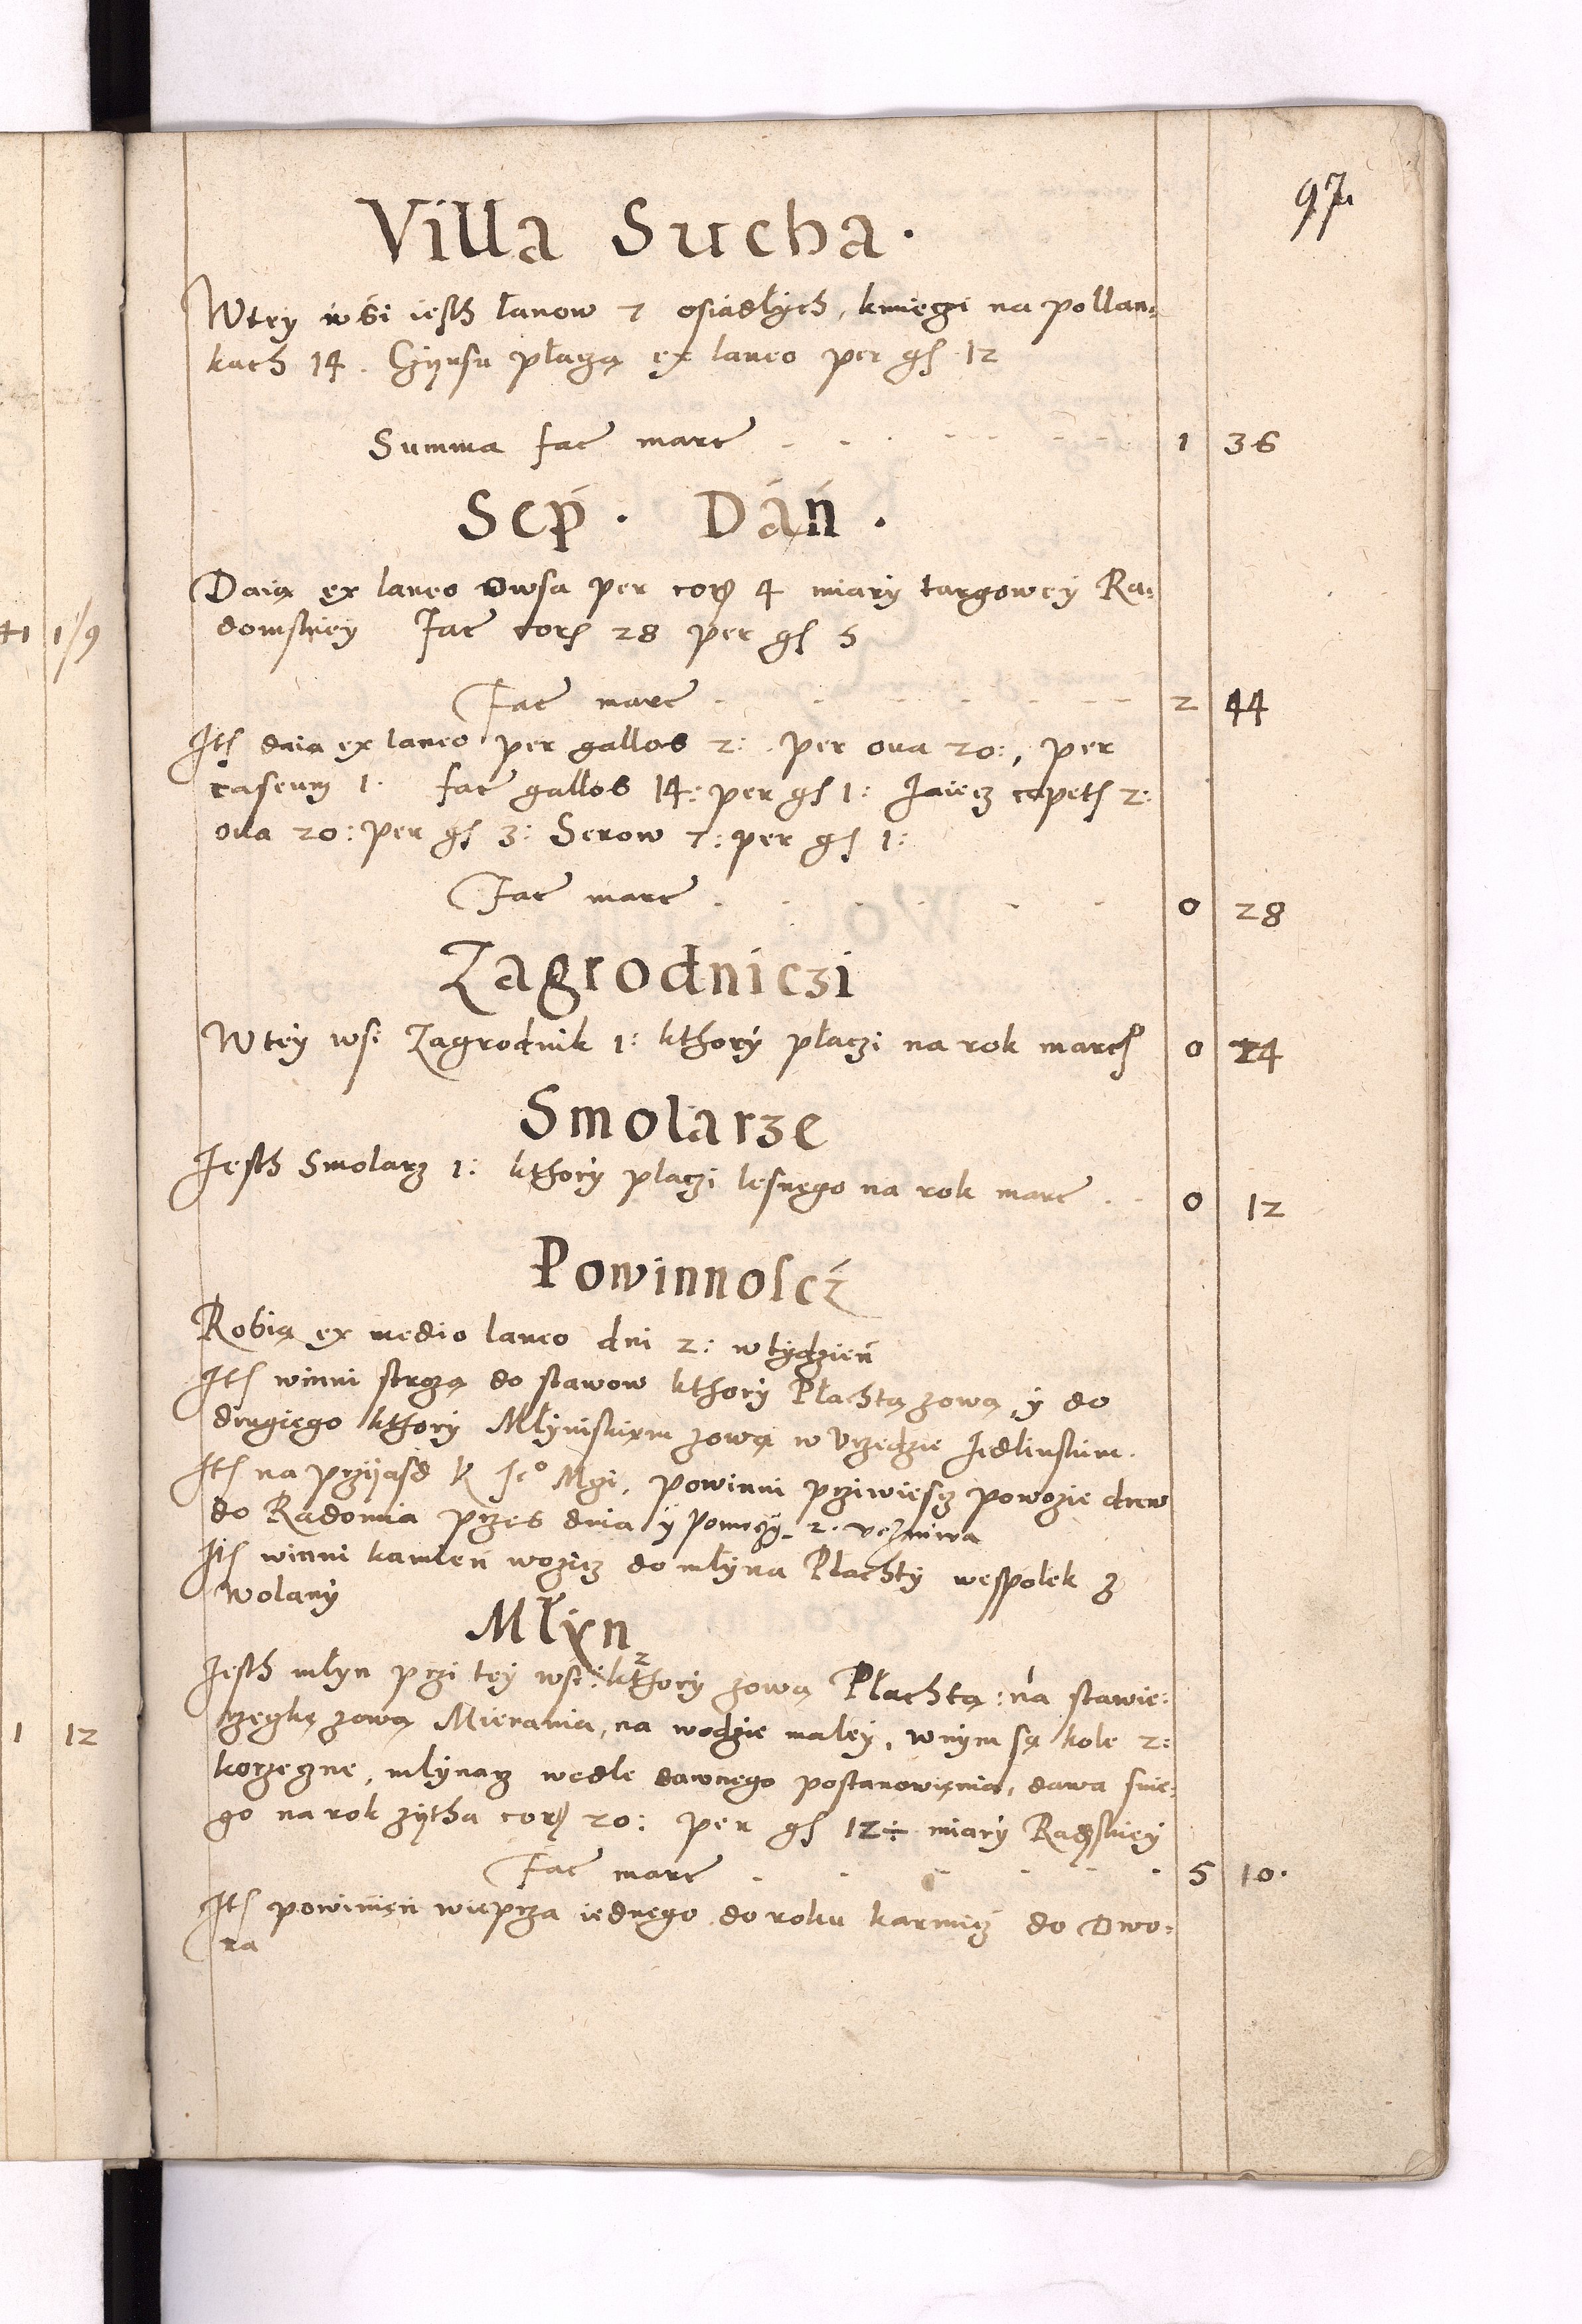 97
Villa Sucha.
Wtey wsi iesth łanow 7 osiadłych, kmieczi na pollan:
kach 14. Czynsu płaczą ex laneo per gs 12
Summa fac marc 1 36
Sep. Dań.
Daią ex laneo owsa per cor 4 miary targowey Ra:
domskiey fac cor 28 per gs 5
Fac marc 2 44
It daia ex laneo per gallos 2: per oua 20:, per
caseum 1: fac gallos 14: per gs 1: Jaiecz capets 2:
oua 20: per gs 3: Serow 7: per gs 1:
Fac marc 0 28
Zagrodniczi
Wtey wsi Zagrodnik 1: kthory płaczi na rok marc 0 24
Smolarze
Jesth Smolarz 1: kthory placzi lesnego na rok marc 0 12
Powinnoscz
Robią ex medio laneo dni 2: w tydzień
It winni strozą do stawow kthory Płachtą zową, y do
drugiego kthory Młyniskiem zową w Vrzędzie Jedlinskim.
It na przyiasd K Je° Mczi, powinni przywiescz powozie drew
do Radomia przes dnia y pomoczy 2. we zniwa
It winni kamień woziez do młyna Płachty wespolek z
Wolany
Młyn
Jesth młyn przi tey wsi: kthory zową Płachtą: na stawie:
rzeczkę zową Mierania, na wodzie małey, wnym są kole 2:
korzeczne, mlynarz wedle dawnego postanowienia, dawa snie:
go na rok zytha cor 20: per gs 12÷ miary Radskiey
Fac marc 5 10.
It powinień wieprza iednego do roku karmicz do Dwo:
ra
41 1/9
1 12